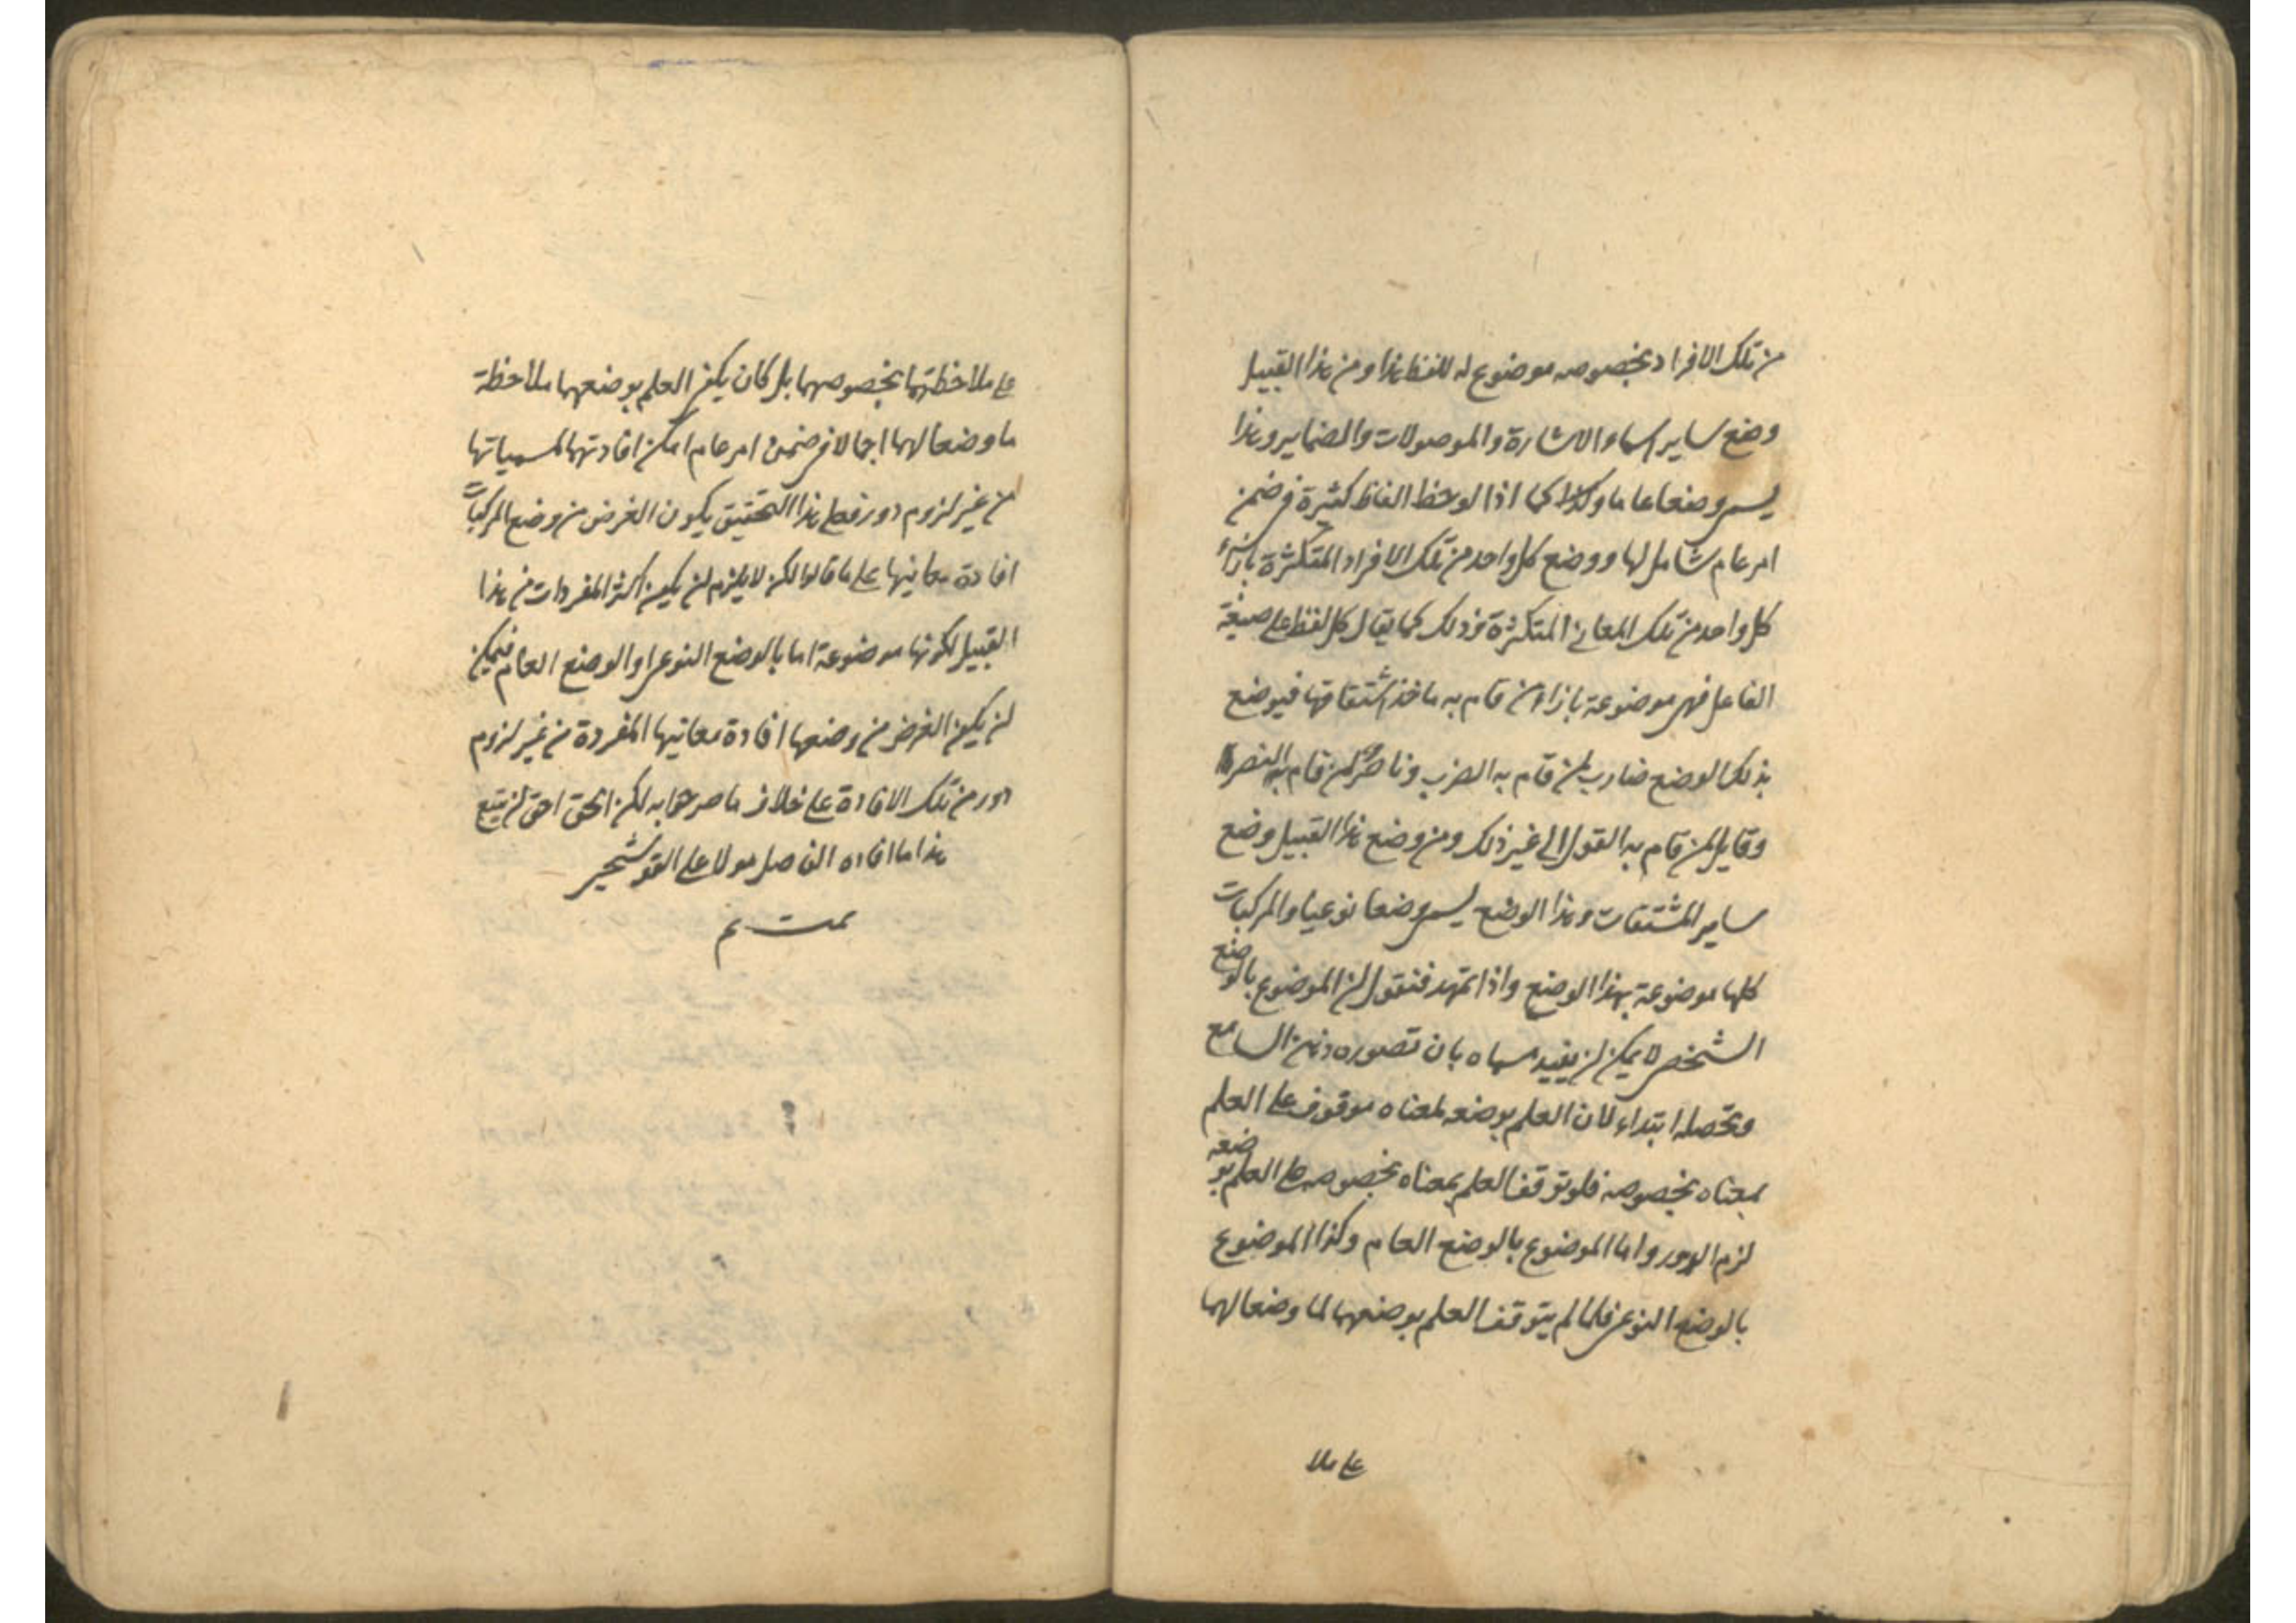 من تلك الافراد بخصوصه موضوع له للفظ هذا ومن هذا القبيل
وضع ساير اسماء الاشارة والموصولات والضماير وهذا
يسمى وضعا عاما وكذا كما اذا لوحظ الفاظ كثيرة في ضمن
امر عام شامل لها ووضع كل واحد من تلك الافراد المتكثرة بازاء
كل واحد من تلك المعاني المتكثرة وذلك كما يقال كل لفظ على صيغة
الفاعل فهى موضوعة بازاء من قام به ماخذ اشتقاقها فيوضع
بذلك الوضع ضارب لمن قام به الضرب وناصر لمن قام به النصر
وقايل لمن قام به القول الى غير ذلك ومن وضع هذا القبيل وضع
ساير المشتقات وهذا الوضع يسمى وضعا نوعيا والمركبات
كلها موضوعة بهذا الوضع واذا تمهد فنقول ان الموضوع بالوضع
الشخصى لا يمكن ان يفيد مسماه بان تصوره ذهن السامع
وتحصله ابتداء لان العلم بوضعه لمعناه موقوف على العلم
بمعناه بخصوصه فلو توقف العلم بمعناه بخصوصه على العلم بوضعه
لزم الدور واما الموضوع بالوضع العام وكذا الموضوع
بالوضع النوعى فلما لم يتوقف العلم بوضعهما لما وضعا لهما
على ملا
على ملاحظتهما بخصوصهما بل كان يكفى العلم بوضعهما ملاحظة
ما وضعا لهما اجمالا فى ضمن امر عام امكن افادتهما لمسمياتها
من غير لزوم دور فعلى هذا التحقيق يكون الغرض من وضع المركبات
افادة معانيها على ما قالوا لكن لا يلزم ان يكون اكثر المفردات من هذا
القبيل لكونها موضوعة اما بالوضع النوعى او الوضع العام فيمكن
ان يكون الغرض من وضعها افادة معانيها المفردة من غير لزوم
دور من تلك الافادة على خلاف ما صرحوا به لكن الحق احق ان يتبع
هذا ما افاده الفاضل مولا على القوشجى
تمت تم